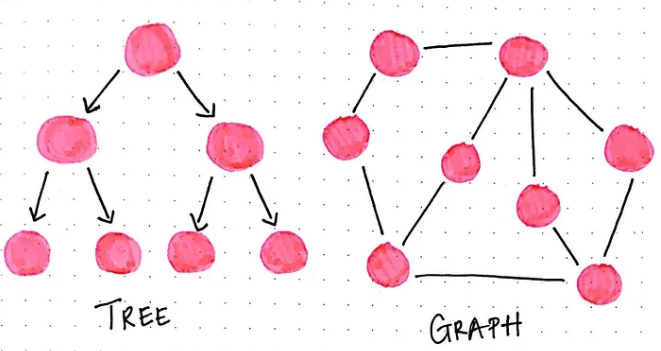 TREE
GRAPH